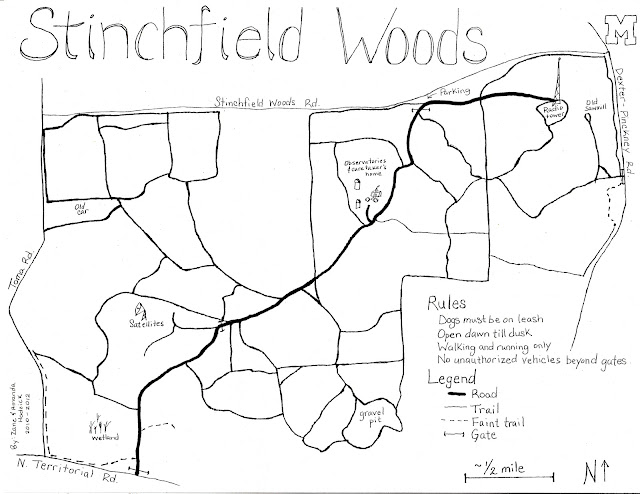 Stinchfield Woods
M
Stinchfield Woods Rd.
Parking
Dexter-Pinckney Rd
Radio
tower
Old
Sawmill
Observatories
& caretaker's
home
Old
car
Toma Rd
Satellites
Rules
Dogs must be on leash
Open dawn till dusk
Walking and running only
No unauthorized vehicles beyond gates
Legend
Road
Trail
Faint trail
Gate
gravel
pit
wetland
By Zane & Amanda
2010-2012
N. Territorial Rd.
~1/2 mile
N↑